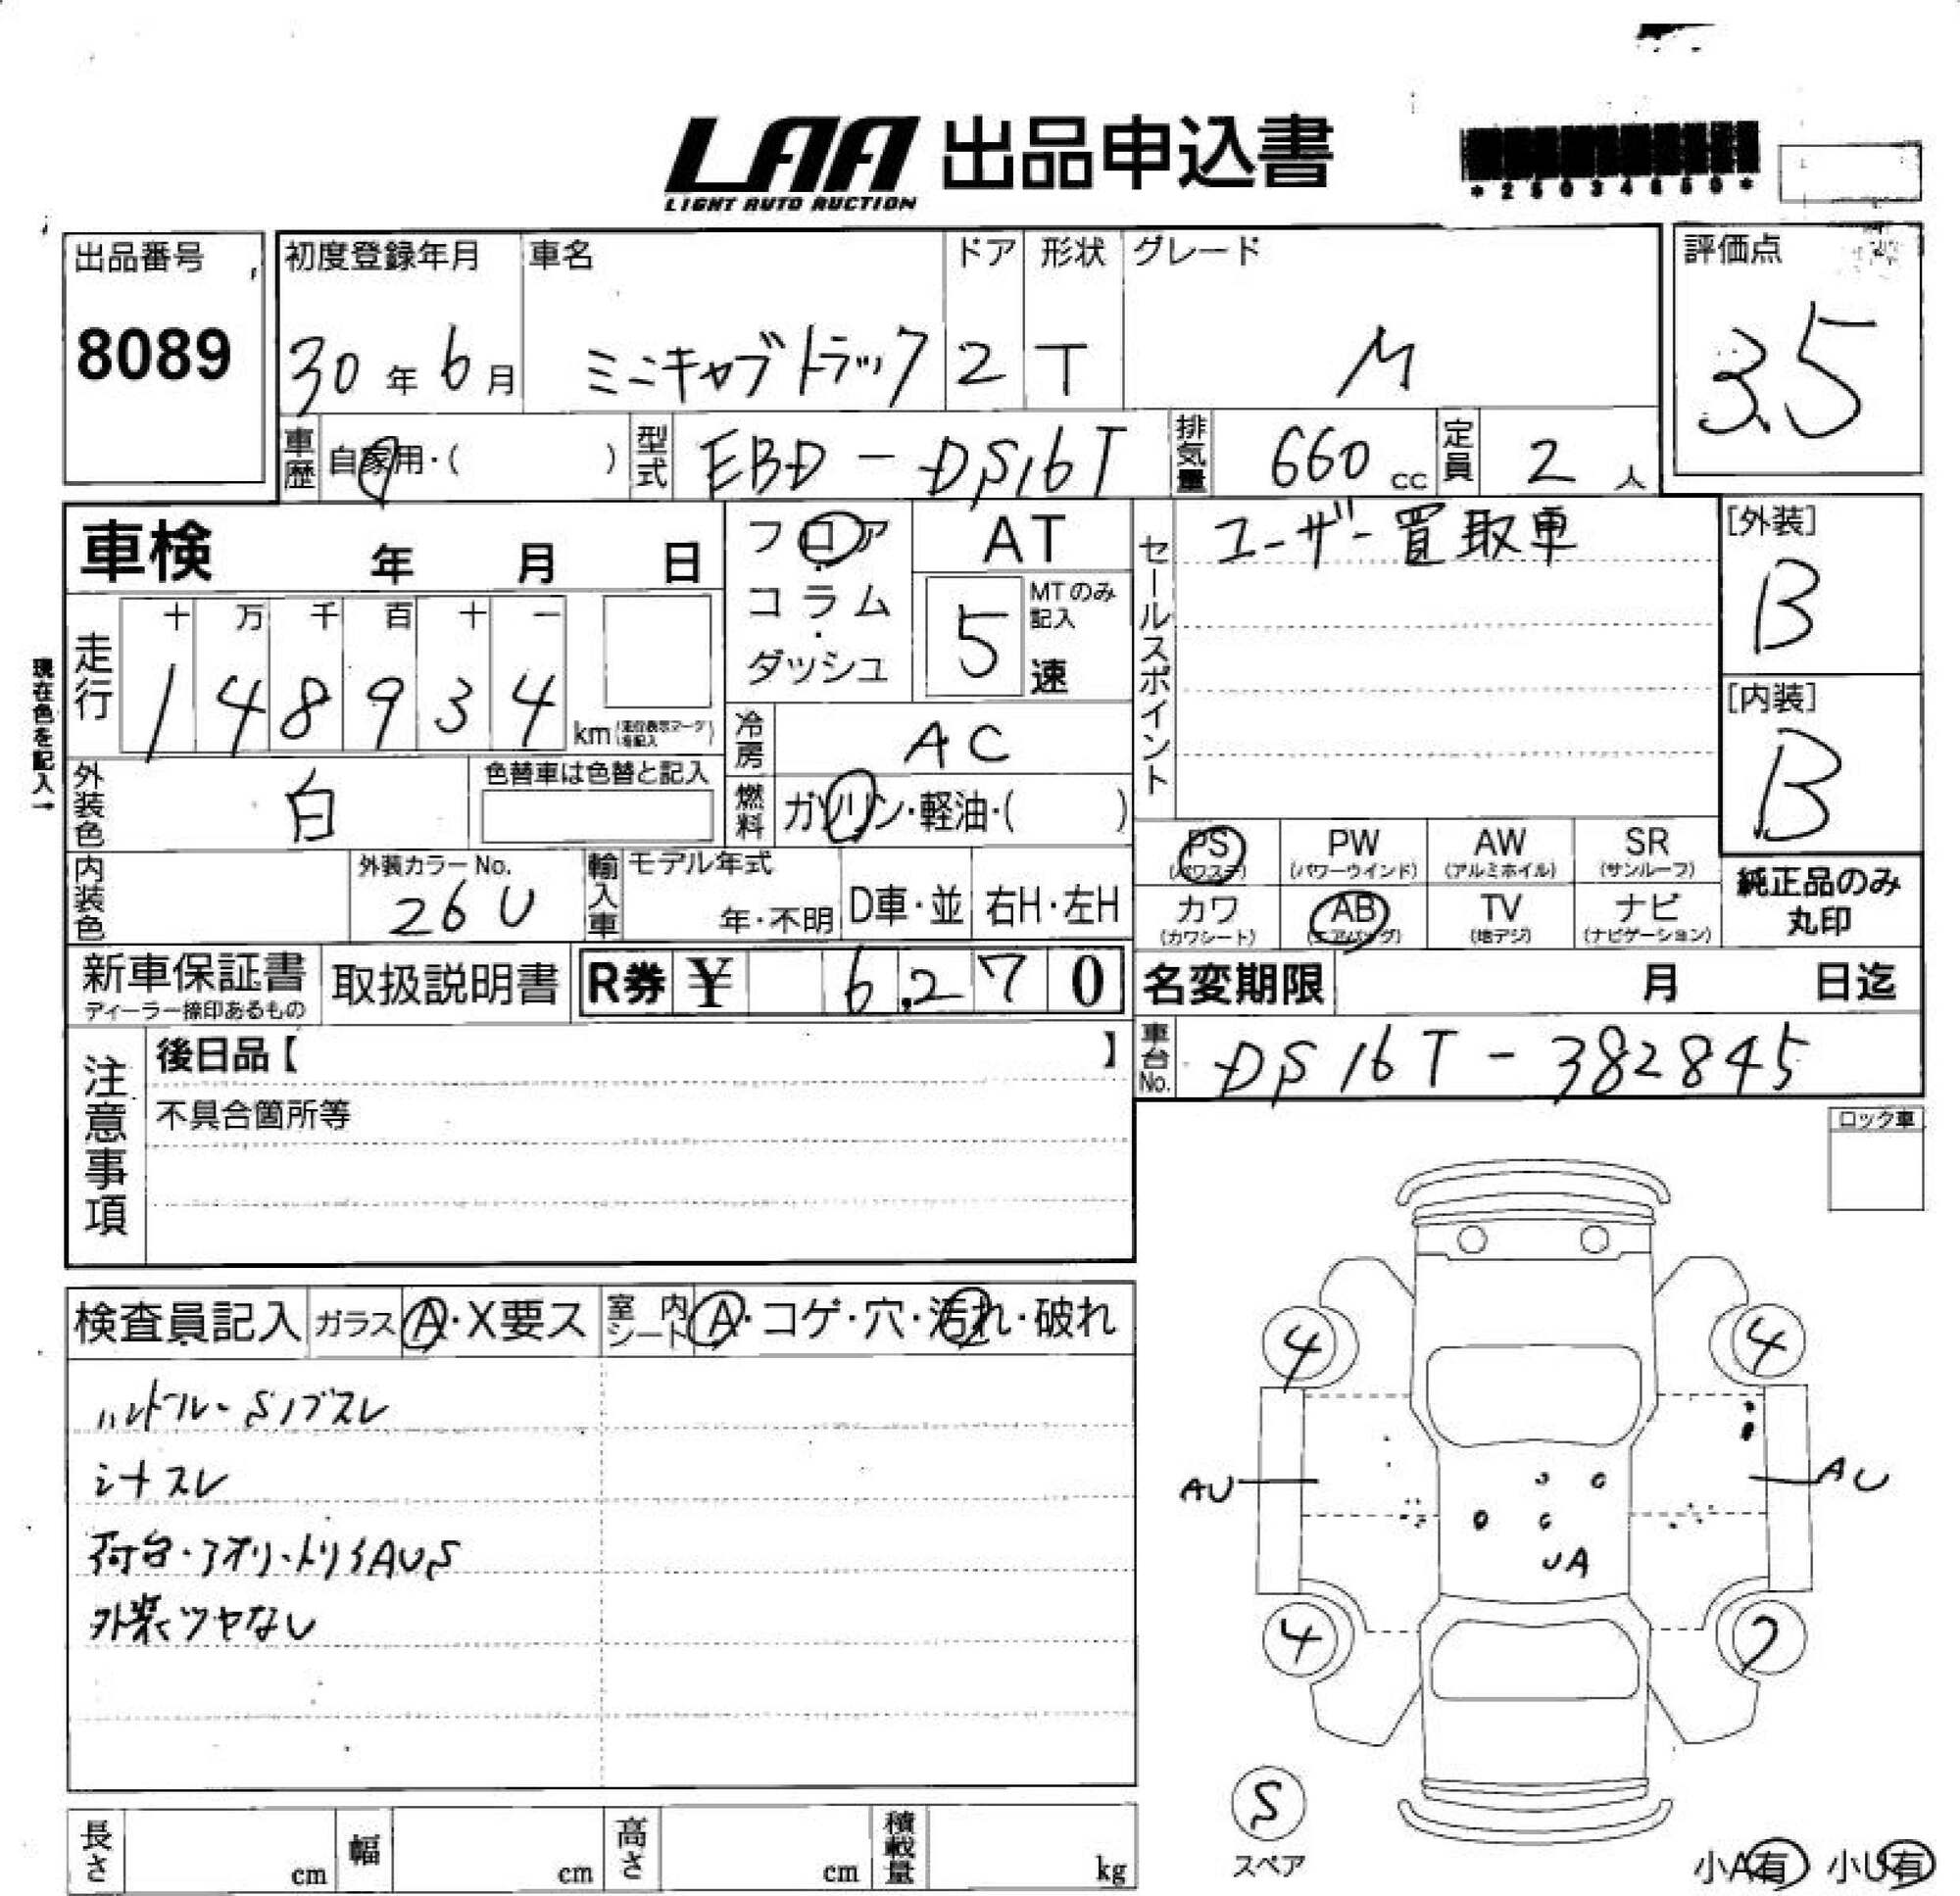 LAA 出品申込書
LIGHT AUTO AUCTION
*25034650*
出品番号
8089
初度登録年月
30年6月
車名
ミニキャブトラック
ドア
2
形状
T
グレード
M
評価点
3.5
車歴
自家用・( )
型式
EBD-DS16T
排気量
660cc
定員
2人
車検 年 月 日
フロア
・
コラム
・
ダッシュ
AT
5
MTのみ
記入
速
セールスポイント
ユーザー買取車
[外装]
B
[内装]
B
現在色を記入→
走行
十 万 千 百 十 一
1 4 8 9 3 4 km
冷房
AC
外装色
白
色替車は色替と記入
燃料
ガソリン・軽油・( )
PS
(パワステ)
PW
(パワーウインド)
AW
(アルミホイル)
SR
(サンルーフ)
カワ
(カワシート)
AB
(エアバッグ)
TV
(地デジ)
ナビ
(ナビゲーション)
純正品のみ
丸印
内装色
外装カラーNo.
26U
輸入車
モデル年式
年・不明
D車・並
右H・左H
新車保証書
ディーラー捺印あるもの
取扱説明書
R券 ¥ 6,270
名変期限 月 日迄
車台No.
DS16T-382845
注意事項
後日品【 】
不具合箇所等
ロック車
検査員記入
ガラス
A・X要ス
室内シート
A・コゲ・穴・汚れ・破れ
ハンドル・Sノブスレ
シートスレ
荷台・アオリ・トリイAUS
外装ツヤなし
4
4
AU
AU
UA
4
7
S
スペア
小A有 小U有
長さ cm
幅 cm
高さ cm
積載量 kg